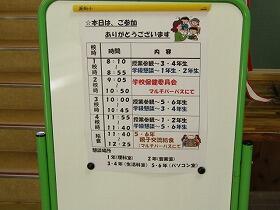 ☆本日は、ご参加
ありがとうございます
校時 時間 内容
1校時 8:10 〜 8:55 授業参観〜3・4年生
学級懇談〜1年生・2年生
2校時 9:05 〜 9:50 学校保健委員会
マルチパーパスにて
3校時 10:00 〜 10:45 授業参観〜5・6年生
学級懇談〜3・4年生
4校時 10:55 〜 11:40 授業参観〜1年生・2年生
学級懇談〜5・6年生
給食 11:40 〜 12:25 5・6年
親子交流給食
マルチパーパスにて
懇談場所
1年(理科室) 2年(図書室)
3・4年(生活科室) 5・6年(パソコン室)